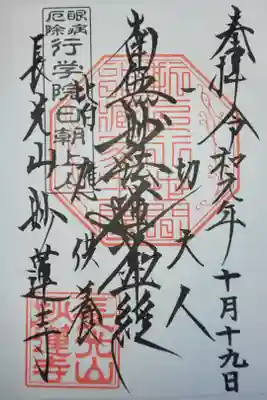 奉拝
令和元年
十月十九日
一切天人
南無妙法蓮華経
皆應供養
眼病
厄除
行学院日朝上人
長光山妙蓮寺
長光山
妙蓮寺